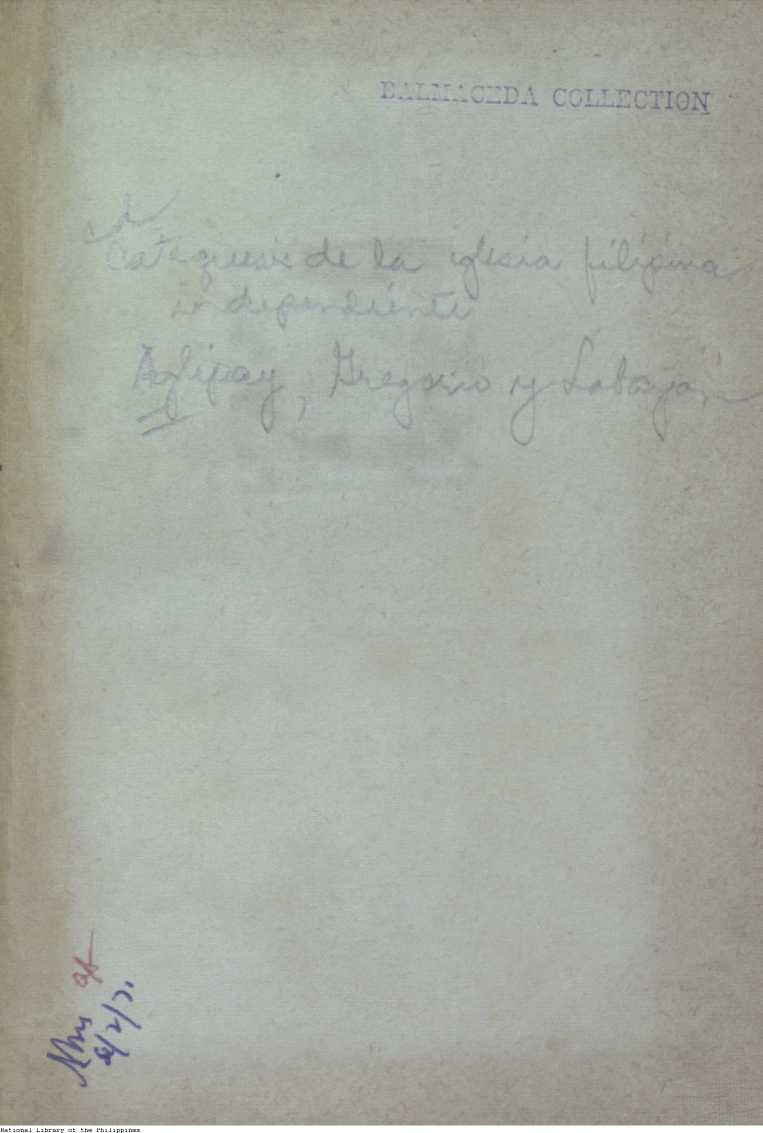 BALMACEDA COLLECTION
Catequesis de la iglesia filipina
independiente
Aglipay, Gregorio y Labayán
6/2/71
National Library of the Philippines